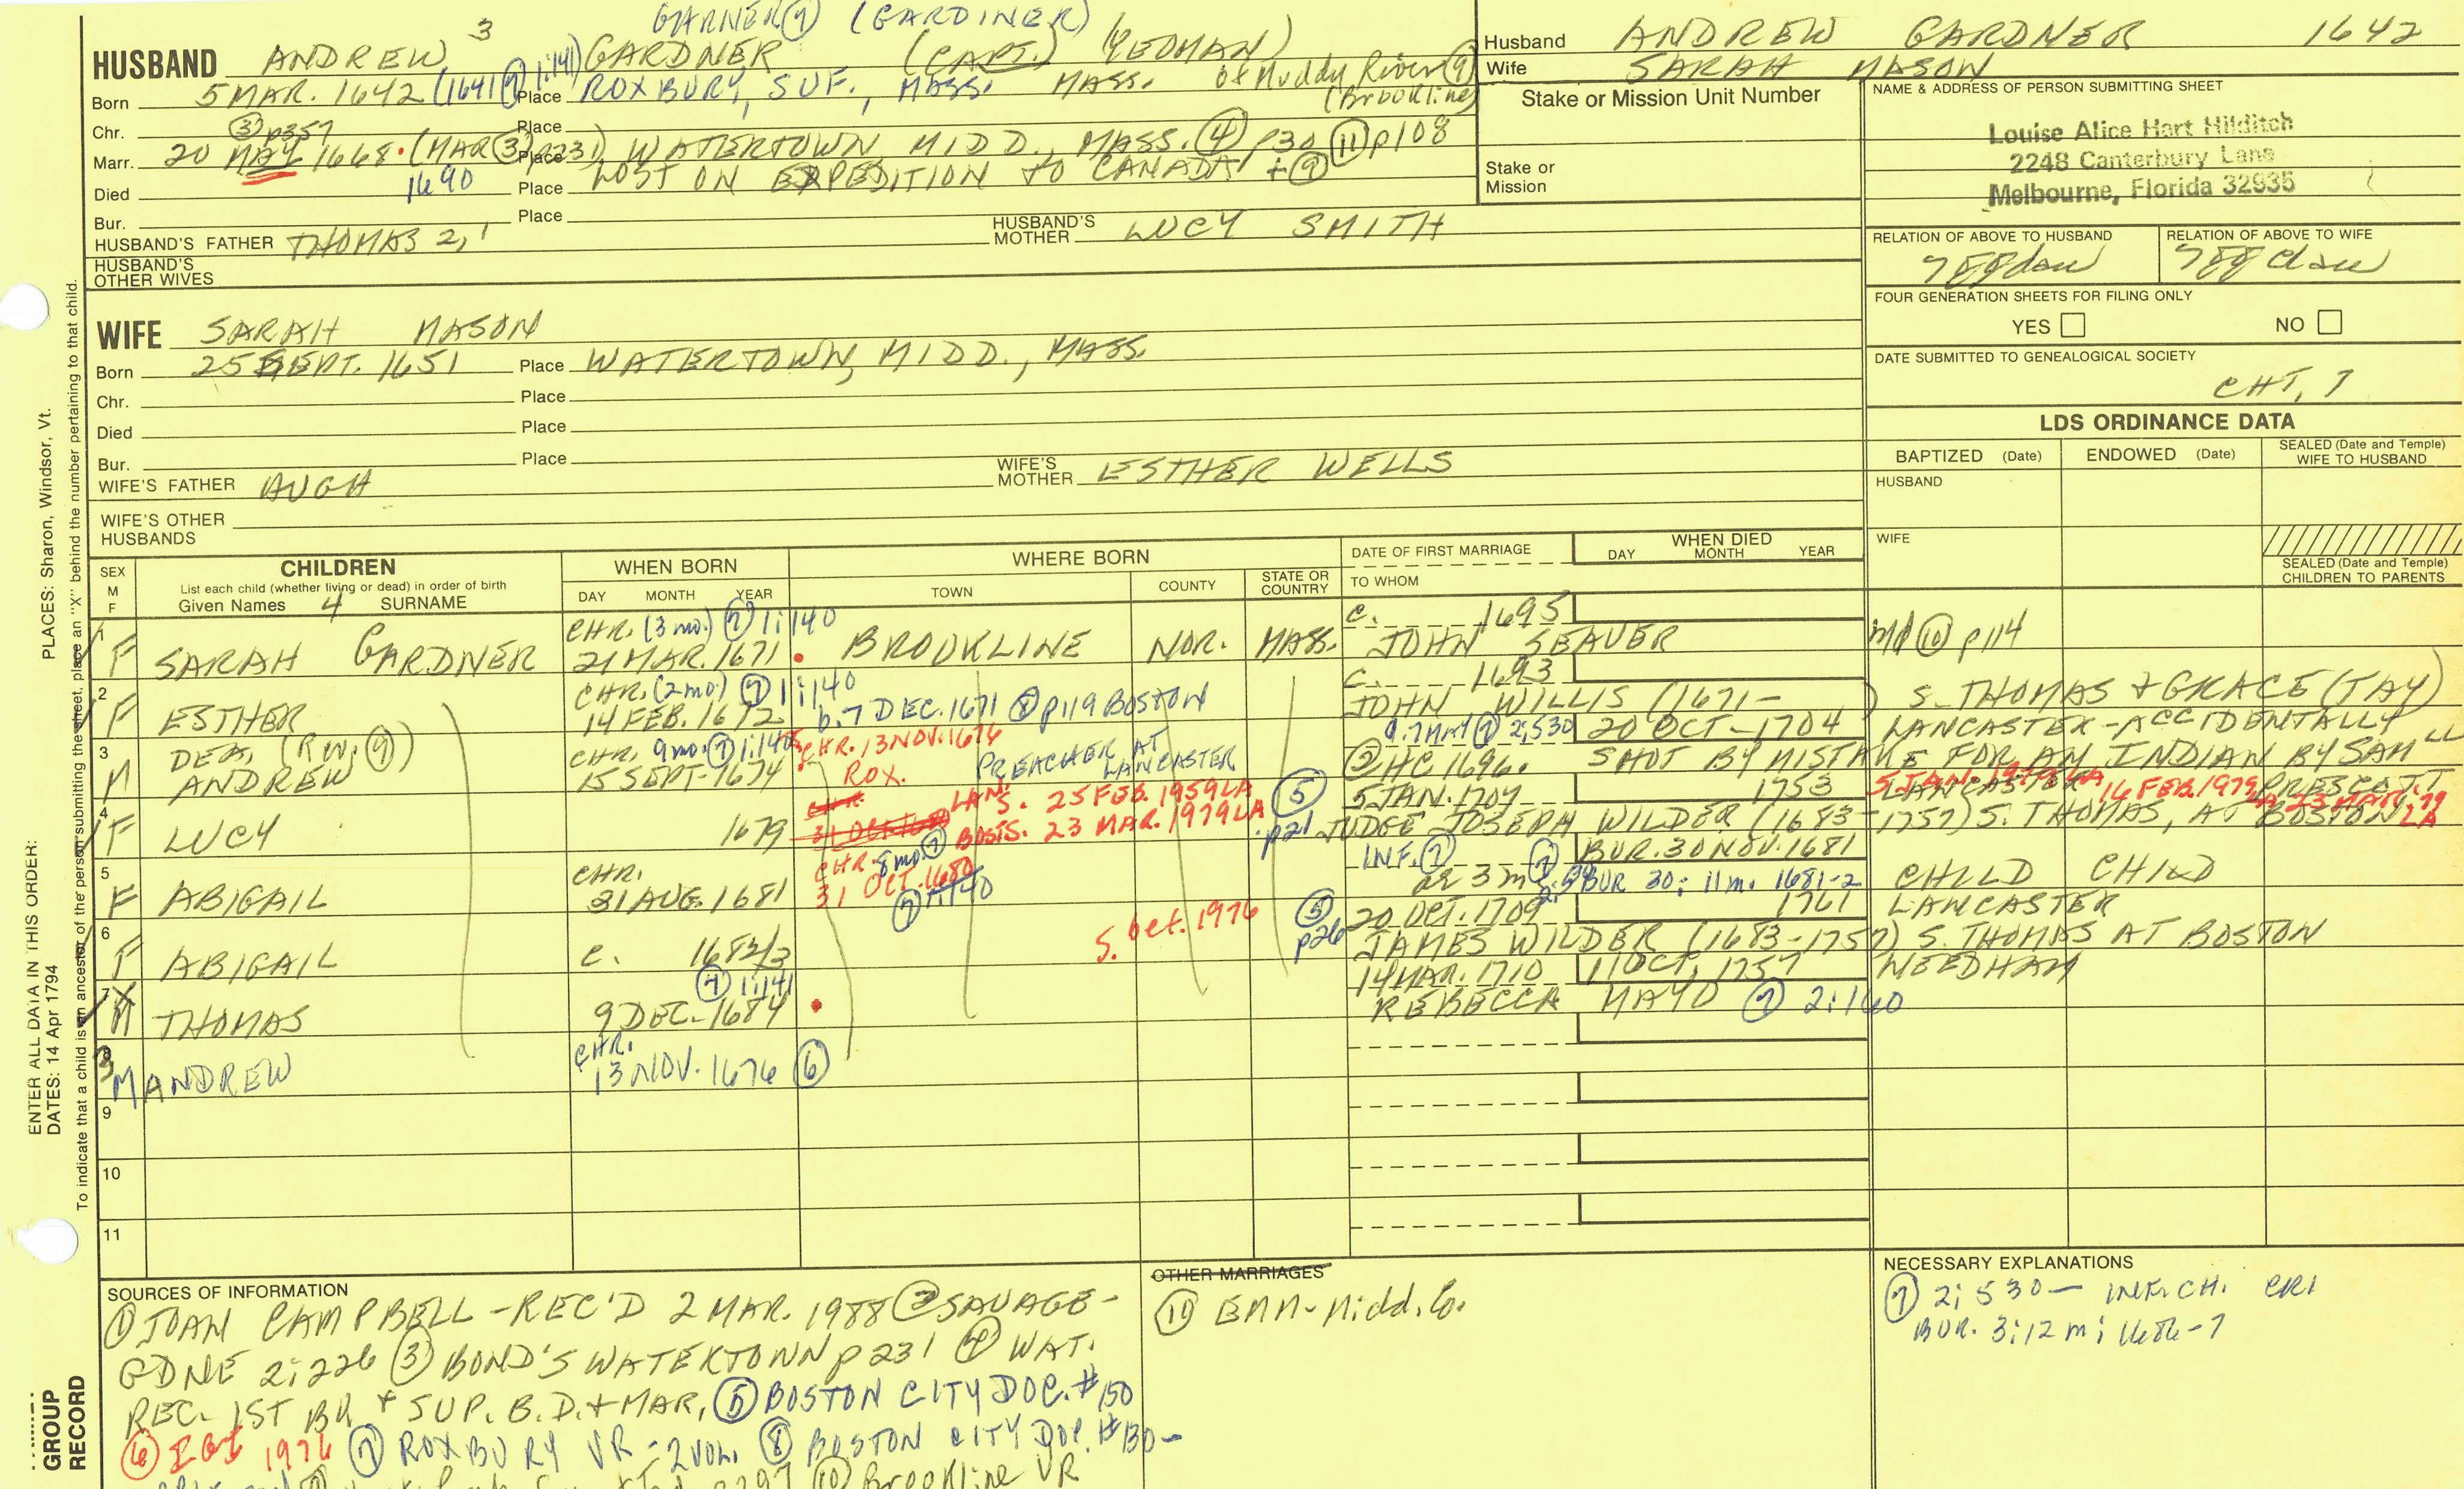 GARNER (7) (GARDINER)
HUSBAND ANDREW 3 GARDNER (CAPT.) (YEOMAN)
Born 5 MAR. 1642 (1641 (7) 1:141) Place ROXBURY, SUF., MASS. MASS. of Muddy River (9) (Brookline)
Chr. (3) p357 Place
Marr. 20 MAY 1668. (MAR (3) p231) Place WATERTOWN MIDD., MASS. (4) p30 (11) p108
Died 1690 Place LOST ON EXPEDITION TO CANADA + (9)
Bur. Place
HUSBAND'S FATHER THOMAS 2, 1 HUSBAND'S MOTHER LUCY SMITH
HUSBAND'S OTHER WIVES
Husband ANDREW GARDNER 1642
Wife SARAH MASON
Stake or Mission Unit Number
Stake or Mission
NAME & ADDRESS OF PERSON SUBMITTING SHEET
Louise Alice Hart Hilditch
2248 Canterbury Lane
Melbourne, Florida 32935
RELATION OF ABOVE TO HUSBAND RELATION OF ABOVE TO WIFE
7 gg dau 7 gg dau
FOUR GENERATION SHEETS FOR FILING ONLY
YES NO
DATE SUBMITTED TO GENEALOGICAL SOCIETY
CHT, 7
WIFE SARAH MASON
Born 25 SEPT. 1651 Place WATERTOWN, MIDD., MASS.
Chr. Place
Died Place
Bur. Place
WIFE'S FATHER HUGH WIFE'S MOTHER ESTHER WELLS
WIFE'S OTHER HUSBANDS
LDS ORDINANCE DATA
BAPTIZED (Date) ENDOWED (Date) SEALED (Date and Temple) WIFE TO HUSBAND
HUSBAND
WIFE
SEALED (Date and Temple) CHILDREN TO PARENTS
SEX M F
CHILDREN
List each child (whether living or dead) in order of birth
Given Names 4 SURNAME
WHEN BORN
DAY MONTH YEAR
WHERE BORN
TOWN COUNTY STATE OR COUNTRY
DATE OF FIRST MARRIAGE
TO WHOM
WHEN DIED
DAY MONTH YEAR
CHR. (3 mo.) (7) 1:140 c. 1695
1 F SARAH GARDNER 21 MAR. 1671 BROOKLINE NOR. MASS. JOHN SEAVER md (10) p114
CHR. (2 mo) (7) 1:140 c. 1693
2 F ESTHER 14 FEB. 1672 b. 7 DEC. 1671 (8) p119 BOSTON JOHN WILLIS (1671- ) S. THOMAS & GRACE (TAY)
9.7 MAY (7) 2:530 20 OCT-1704 LANCASTER-ACCIDENTALLY
3 M DEA. (Rev. (9)) ANDREW CHR. 9mo. (7) 1:140 15 SEPT-1674 CHR. 13 NOV. 1676 ROX. PREACHER AT LANCASTER (2) HC 1696. SHOT BY MISTAKE FOR AN INDIAN BY SAMLL PRESCOTT
LAN S. 25 FEB. 1959 LA (5) p21 5 JAN. 1707 1753 LANCASTER
5 JAN. 1979 LA 16 FEB. 1979 LA 23 MAR. 79 LA
4 F LUCY 1679 BOSTS. 23 MAR. 1979 LA JUDGE JOSEPH WILDER (1683-1757) S. THOMAS, AT BOSTON
CHR. 8mo (7) 31 OCT. 1680 (7) 1:140
INF. (7) BUR. 30 NOV. 1681
5 F ABIGAIL CHR. 31 AUG. 1681 ae 3 m (7) BUR 30: 11m. 1681-2 CHILD CHILD
S. Oct. 1976 (5) p26 20 OCT. 1709 1761 LANCASTER
6 F ABIGAIL c. 1682/3 JAMES WILDER (1683-1757) S. THOMAS AT BOSTON
(7) 1:141 14 MAR. 1710 11 OCT. 1757 NEEDHAM
7 X M THOMAS 9 DEC-1684 REBECCA MAYO (7) 2:160
8 3 M ANDREW CHR. 13 NOV. 1676 (6)
9
10
11
SOURCES OF INFORMATION
(1) JOAN CAMPBELL-REC'D 2 MAR. 1988 (2) SAVAGE-
GDNE 2:226 (3) BOND'S WATERTOWN p231 (4) WAT.
REC. 1ST BK & SUP. B.D.+MAR, (5) BOSTON CITY DOC. #150
(6) IGI 1976 (7) ROXBURY VR-2 VOL. (8) BOSTON CITY DOC. #130-
(10) Brookline VR
OTHER MARRIAGES
(11) EMM-Midd. Co.
NECESSARY EXPLANATIONS
(7) 2:530- INF. CH. CR1
BUR. 3:12 m: 1686-7
ENTER ALL DATA IN THIS ORDER:
DATES: 14 Apr 1794 PLACES: Sharon, Windsor, Vt.
To indicate that a child is an ancestor of the person submitting the sheet, place an "X" behind the number pertaining to that child.
GROUP RECORD